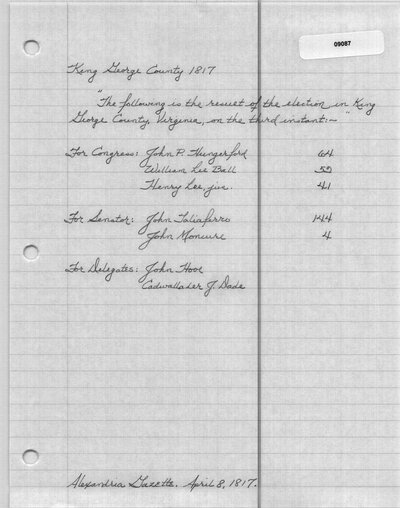 09087
King George County 1817
"The following is the result of the election in King
George County, Virginia, on the third instant:~ "
For Congress: John P. Hungerford 64
William Lee Ball 52
Henry Lee, jun. 41
For Senator: John Taliaferro 144
John Moncure 4
For Delegates: John Hooe
Cadwallader J. Dade
Alexandria Gazette. April 8, 1817.